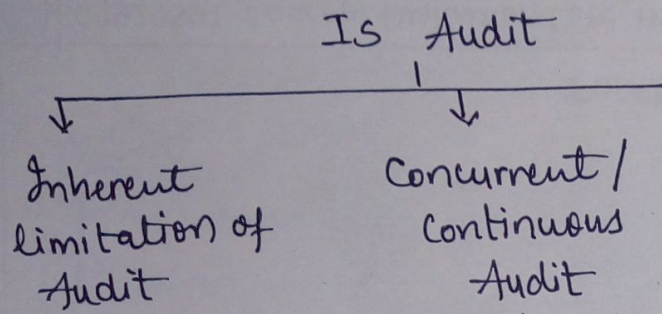 Is Audit
Inherent
limitation of
Audit
Concurrent/
Continuous
Audit